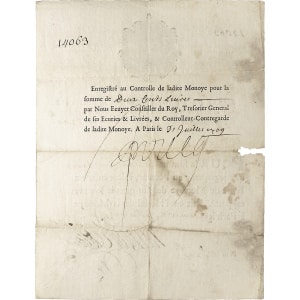 14063
Enregistré au Controlle de ladite Monoye pour la
somme de Deux Cents Livres
par Nous Ecuyer Conseiller du Roy, Tresorier General
de ses Ecuries & Livrées, & Controlleur-Contregarde
de ladite Monoye. A Paris le Juillet 1709